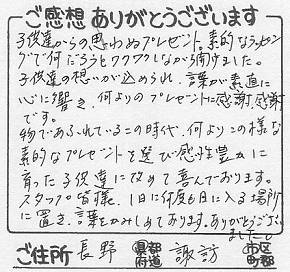 ご感想ありがとうございます
子供達からの思わぬプレゼント。素的なラッピン
グで何だろうとワクワクしながら開けました。
子供達の想いが込められ、言葉が素直に
心に響き、何よりのプレゼントに感謝感謝
です。
物であふれているこの時代、何よりこの様な
素的なプレゼントを選び感性豊かに
育った子供達に改めて喜んでおります。
スタッフ皆様、1日に何度も目に入る場所
に置き、言葉をかみしめております。ありがとうござい
ましたー
ご住所 長野 都道府県 諏訪 市区町郡